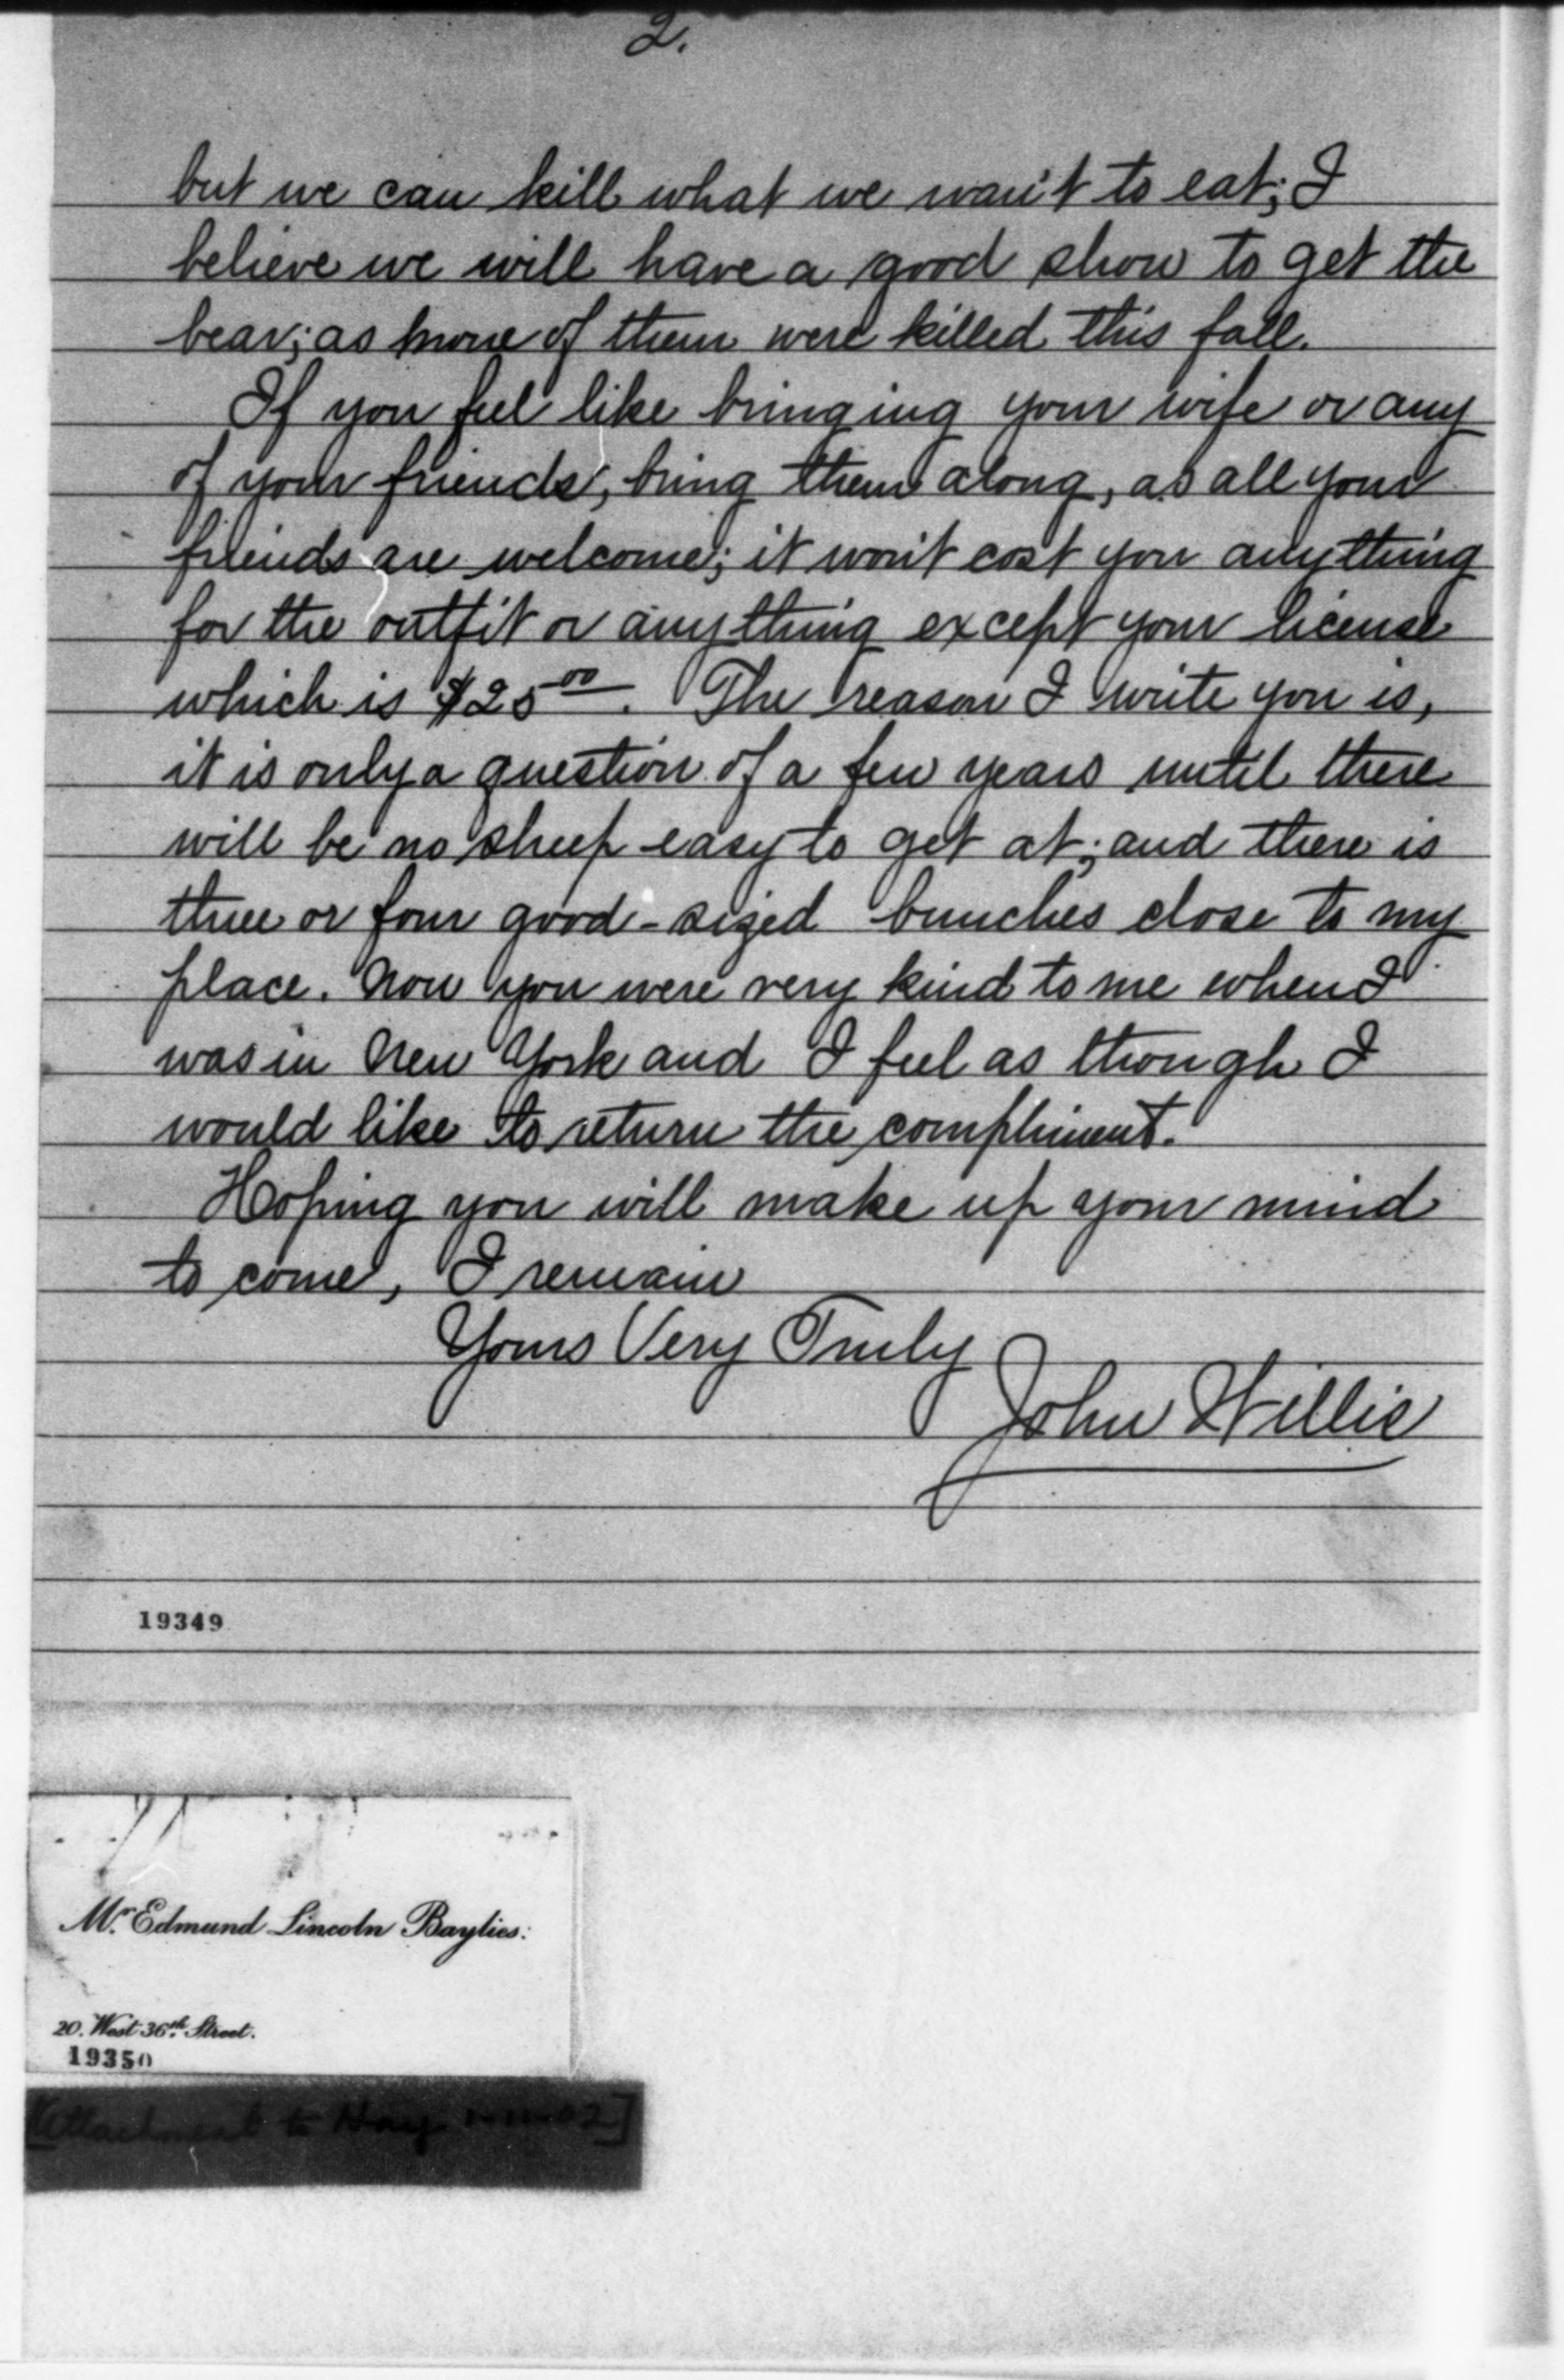 2.
but we can kill what we wan't to eat; I
believe we will have a good show to get the
bear; as none of them were killed this fall.
If you feel like bringing your wife or any
of your friends, bring them along, as all your
friends are welcome; it won't cost you anything
for the outfit or anything except your license
which is $25 00. The reason I write you is,
it is only a question of a few years until there
will be no sheep easy to get at; and there is
three or four good-sized bunches close to my
place. Now you were very kind to me when I
was in New York and I feel as though I
would like to return the compliment.
Hoping you will make up your mind
to come, I remain
Yours Very Truly
John Willis
19349
Mr. Edmund Lincoln Baylies:
20. West 36th Street.
19350
[Attachment to Hay 1-11-02]